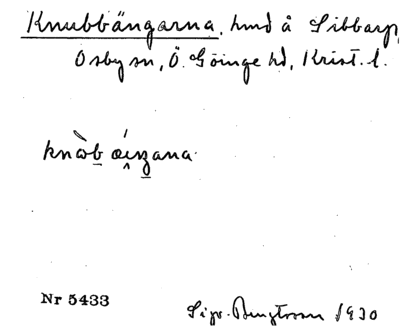 Knubbängarna, hmd å Sibbarp,
Osby sn, Ö. Göinge hd, Krist. l.
Nr 5433
Sigv. Bengtsson 1930